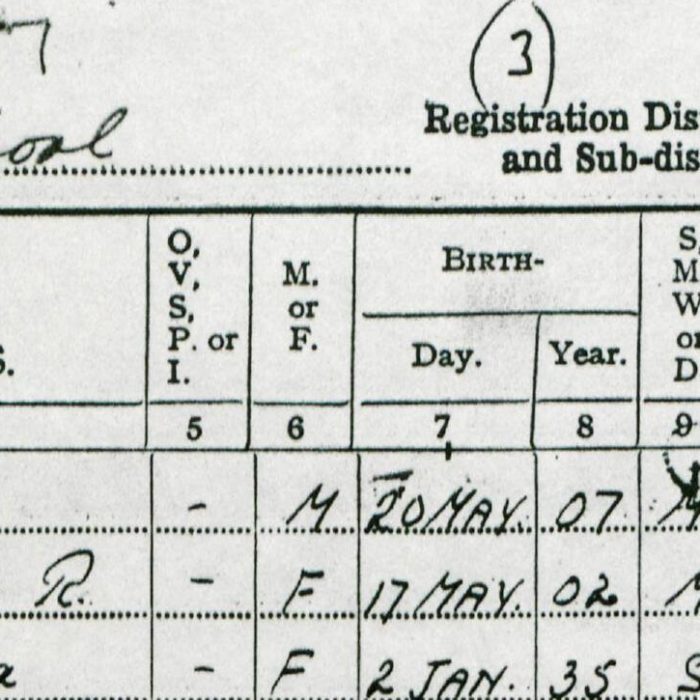 3
Registration Dis
and Sub-dis
O,
V,
S,
P. or
I.
M.
or
F.
BIRTH-
Day.
Year.
S,
M
W
or
D
S.
5 6 7 8 9
- M 20 MAY. 07 M
R. - F 17 MAY. 02 M
a - F 2 JAN. 35 S